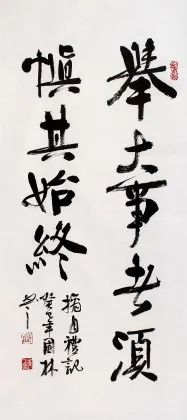 舉大事者須
慎其始終
摘自禮記
癸巳年國林